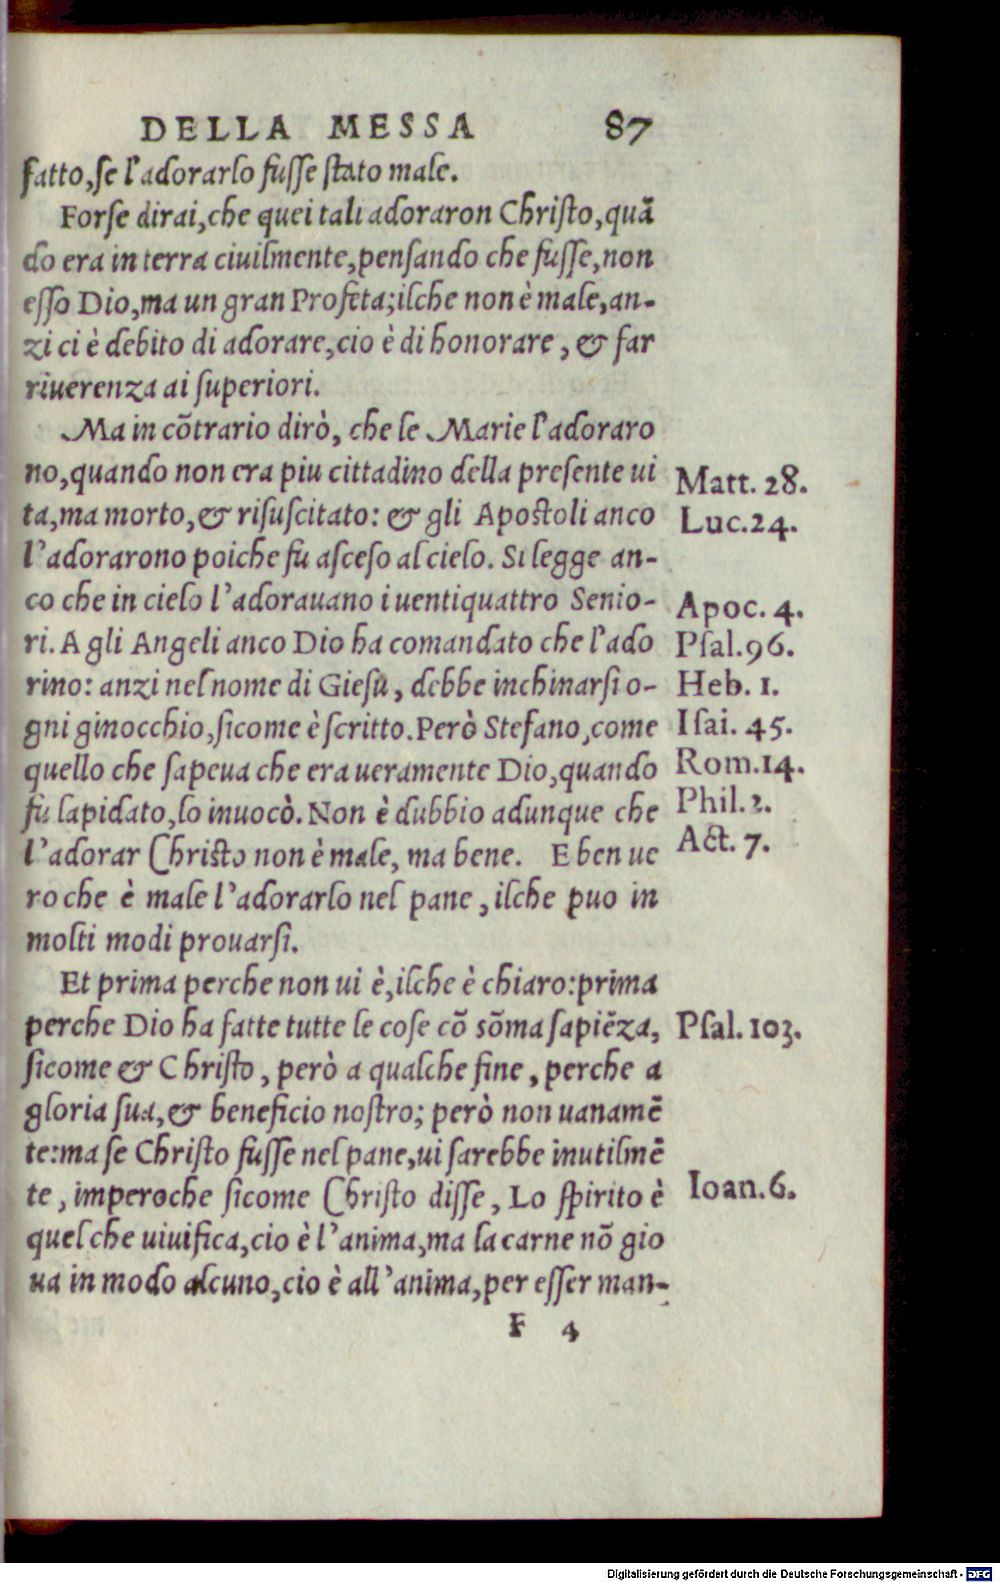 DELLA MESSA 87
fatto, se l'adorarlo fusse stato male.
Forse dirai, che quei tali adoraron Christo, quã
do era in terra ciuilmente, pensando che fusse, non
esso Dio, ma un gran Profeta; ilche non è male, an-
zi ci è debito di adorare, cio è di honorare, & far
riuerenza ai superiori.
Ma in cõtrario dirò, che le Marie l'adoraro
no, quando non era piu cittadino della presente ui
ta, ma morto, & risuscitato: & gli Apostoli anco
l'adorarono poiche fu asceso al cielo. Si legge an-
co che in cielo l'adorauano i uentiquattro Senio-
ri. A gli Angeli anco Dio ha comandato che l'ado
rino: anzi nel nome di Giesu, debbe inchinarsi o-
gni ginocchio, sicome è scritto. Però Stefano, come
quello che sapeua che era ueramente Dio, quando
fu lapidato, lo inuocò. Non è dubbio adunque che
l'adorar Christo non è male, ma bene. E ben ue
ro che è male l'adorarlo nel pane, ilche puo in
molti modi prouarsi.
Et prima perche non ui è, ilche è chiaro: prima
perche Dio ha fatte tutte le cose cõ sõma sapiẽza,
sicome & Christo, però a qualche fine, perche a
gloria sua, & beneficio nostro; però non uanamẽ
te: ma se Christo fusse nel pane, ui sarebbe inutilmẽ
te, imperoche sicome Christo disse, Lo spirito è
quel che uiuifica, cio è l'anima, ma la carne nõ gio
ua in modo alcuno, cio è all'anima, per esser man-
F 4
Matt. 28.
Luc. 24.
Apoc. 4.
Psal. 96.
Heb. 1.
Isai. 45.
Rom. 14.
Phil. 2.
Act. 7.
Psal. 103.
Ioan. 6.
Digitalisierung gefördert durch die Deutsche Forschungsgemeinschaft - DFG